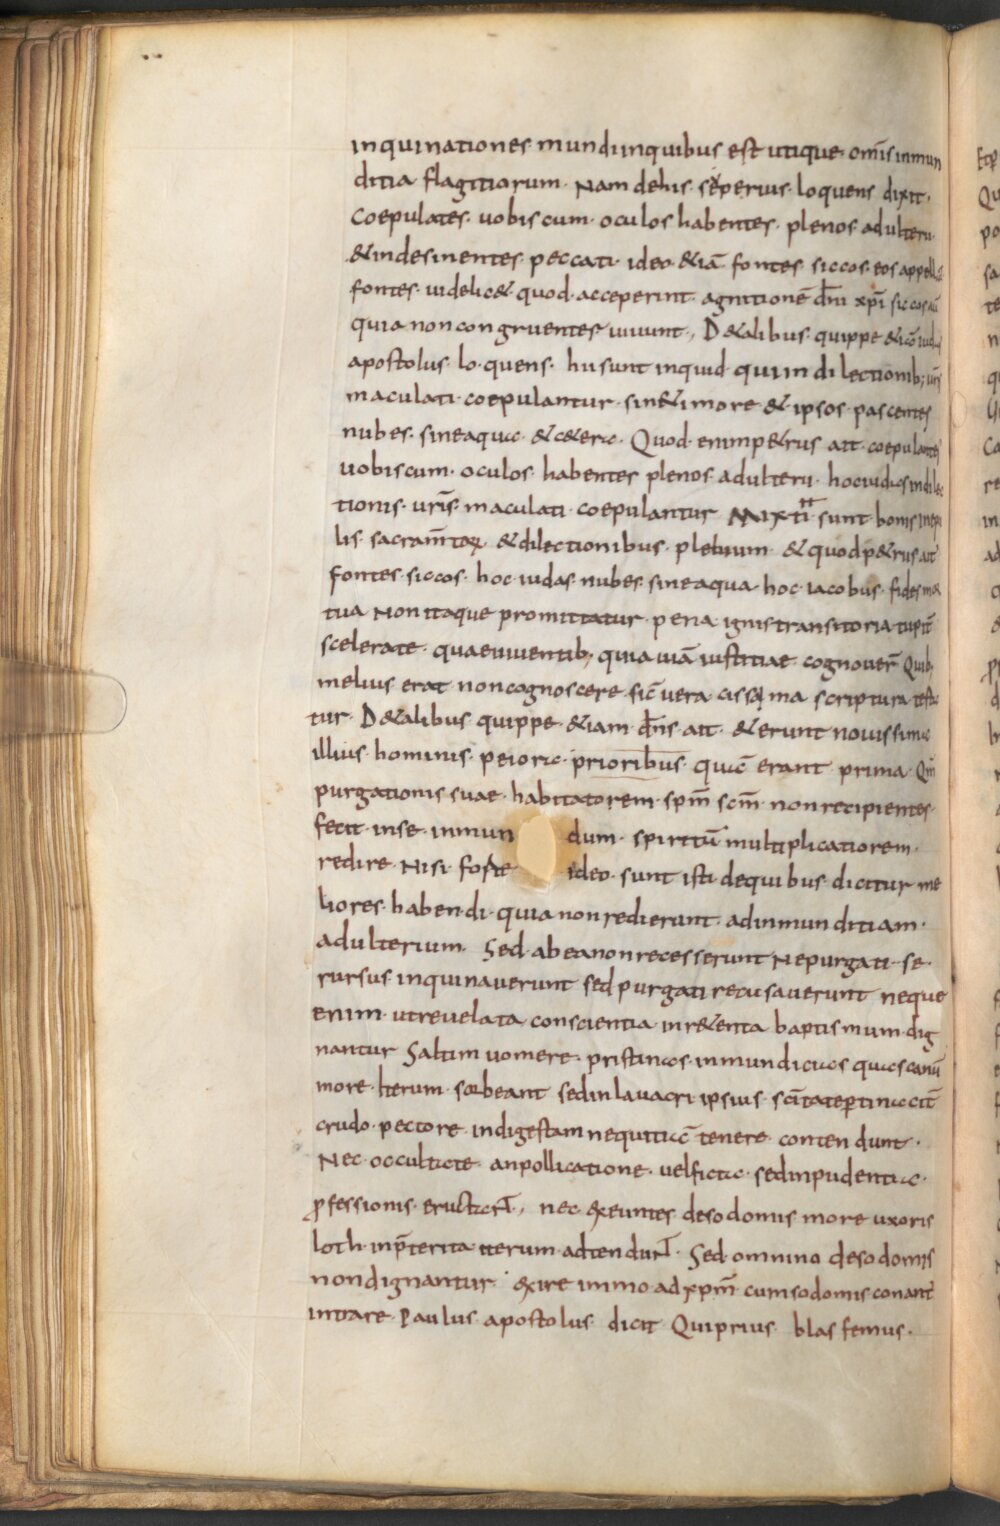 inquinationes mundi inquibus est utique om̄is inmun
ditia flagitiorum · Nam dehis · superius · loquens dixit ·
Coepulates · uobis cum · oculos habentes · plenos adulterii ·
&indesinentes · peccati · ideo &iā fontes · siccos · eos appell
fontes · uidelic& · quod · acceperint · agnitionē dn̄i xp̄i siccos aū
quia non congruentes uiuunt, D&alibus · quippe
apostolus · lo·quens · hii sunt inquid · qui in dilectionib; uris
maculati · coepulantur · sin&imore & ipsos · pascentes
nubes · sineaqua · &c&era · Quod · enimp&rus ait · coepulantes
uobiscum · oculos · habentes plenos adulterii · hociudas indilec
tionis · uris̄ · maculati · coepulantur Mixti sunt · bonis inepu
lis · sacram̄toꝝ &dilectionibus · plebium · & quodp&rus ait
fontes · siccos · hoc · iudas · nubes · sineaqua · hoc · iacobus · fides mor
tua Non itaque promittatur · pena ignis transitoria turpit̄
scelerate · quaeuiuentib; quia uiā iustitiae cognouer̄ Quib;
melius erat noncognoscere · sic̄ uera cissima scriptura testa
tur · D&alibus quippe · &iam · dn̄s · ait · &erunt nouissima
illius · hominis · peiora · prioribus · quā erant prima · Qm̄
purgationis suae · habitatorem · spm̄ · scm̄ · non recipientes ·
fecit · inse · inmun dum · spiritū multiplicatiorem ·
redire · Nisi · forte ideo · sunt isti dequibus · dicitur me
liores · haben·di · quia non redierunt · adinmun ditiam ·
adulterium · Sed · abea non recesserunt Nepurgati · se ·
rursus · inquinauerunt sed purgati recusauerunt neque
enim · utreuelata conscientia inret&enta baptismum · dig
nantur Saltim uomere · pristinas · inmundicias quas canū
more · Iterum · sorbeant sedinlauacri ipsius · scītatepertinacit̄
crudo · pectore · indigestam nequitiā tenere · conten dunt ·
Nec · occultate · anpollicatione · uelficta · sedinpudentia ·
ꝓfessionis · eructant, nec exeuntes desodomis more uxoris
loth · inp̄terita iterum adtendunt · Sed omnino desodomis
nondignantur · exire immo ad xpm̄ · cumsodomis conant̄
intrare Paulus apostolus · dicit Quiprius · blas femus ·